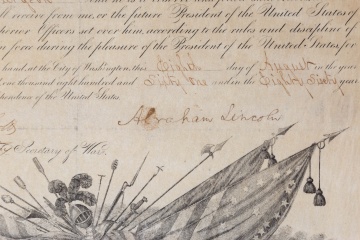 shall receive from me, or the future President of the United States of
Superior Officers set over him, according to the rules and discipline of
in force during the pleasure of the President of the United States for
hand, at the City of Washington, this Eighth day of August in the year
one thousand eight hundred and Sixty One and in the Eighty Sixth year
ependence of the United States.
Abraham Lincoln
Secretary of War.